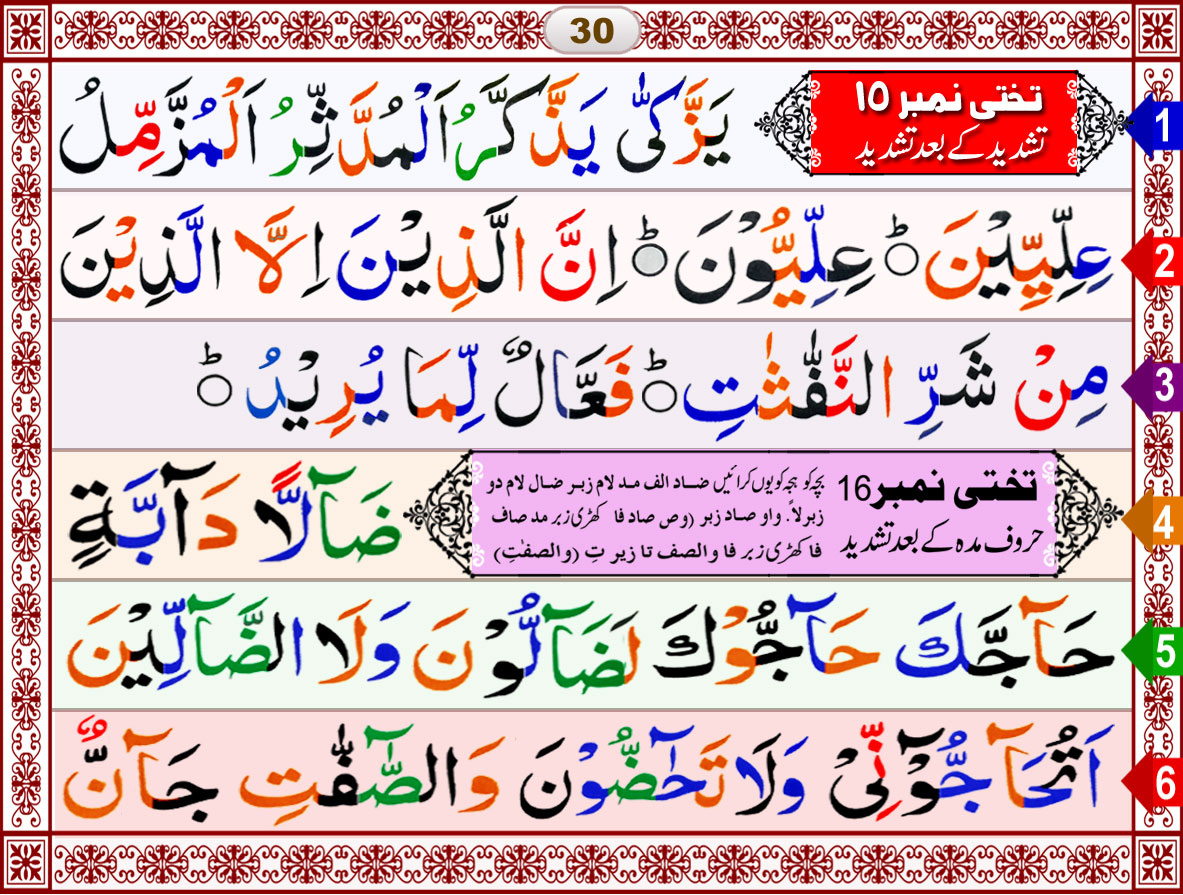 30
1
تختی نمبر ۱۵
تشدید کے بعد تشدید
يَزَّكّٰى يَذَّكَّرُ اَلْمُدَّثِّرُ اَلْمُزَّمِّلُ
2
عِلِّيِّيْنَ ؕ○ عِلِّيُّوْنَ ؕ○ اِنَّ الَّذِيْنَ اِلَّا الَّذِيْنَ
3
مِنْ شَرِّ النَّفّٰثٰتِ ؕ○ فَعَّالٌ لِّمَا يُرِيْدُ ؕ○
4
تختی نمبر16
حروف مدہ کے بعد تشدید
بچہ کو ہجہ کو یوں کرائیں ضاد الف مد لام زبر ضال لام دو
زبر لاً. واو صاد زبر (وص صاد فا کھڑی زبر مد صاف
فا کھڑی زبر فا والصف تا زیر تِ (والصفٰتِ)
ضَآلًّا دَآبَّةٍ
5
حَآجَّكَ حَآجُّوْكَ لَضَآلُّوْنَ وَلَا الضَّآلِّيْنَ
6
اَتُحَآجُّوْٓنِّىْ وَلَا تَحٰٓضُّوْنَ وَالصّٰٓفّٰتِ جَآنٌّ